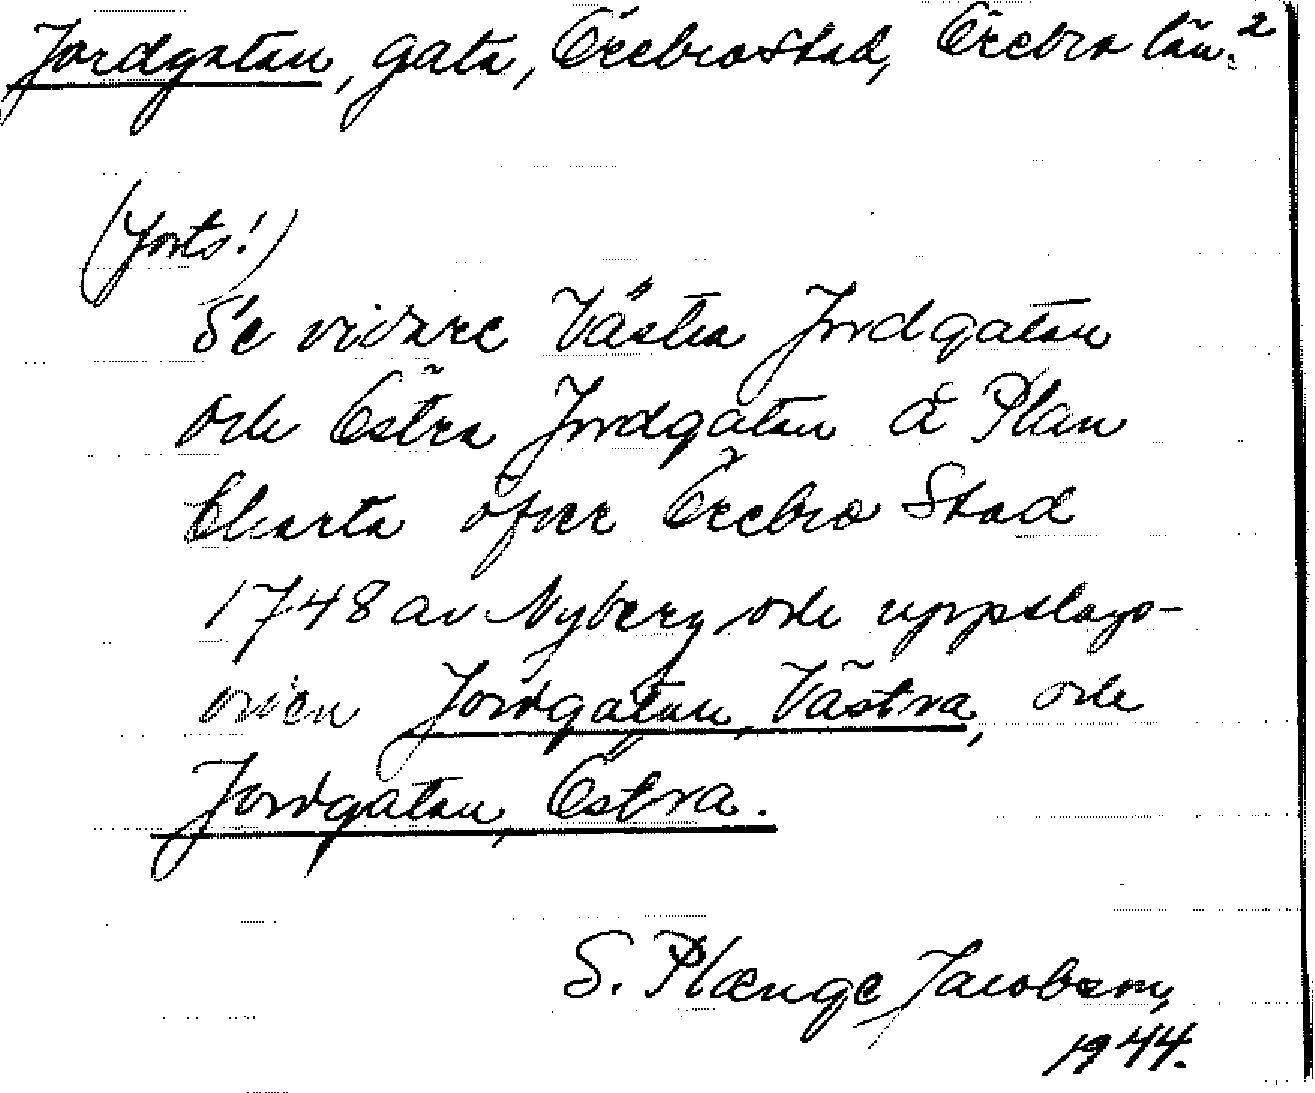 Jordgatan, gata, Örebro stad, Örebro län. 2
(forts!)
Se vidare Västra Jordgatan
och Östra Jordgatan å Plan
Charta öfver Örebro Stad
1748 av Nyberg och uppslags-
orden Jordgatan, Västra, och
Jordgatan, Östra.
S. Plænge Jacobson,
1944.